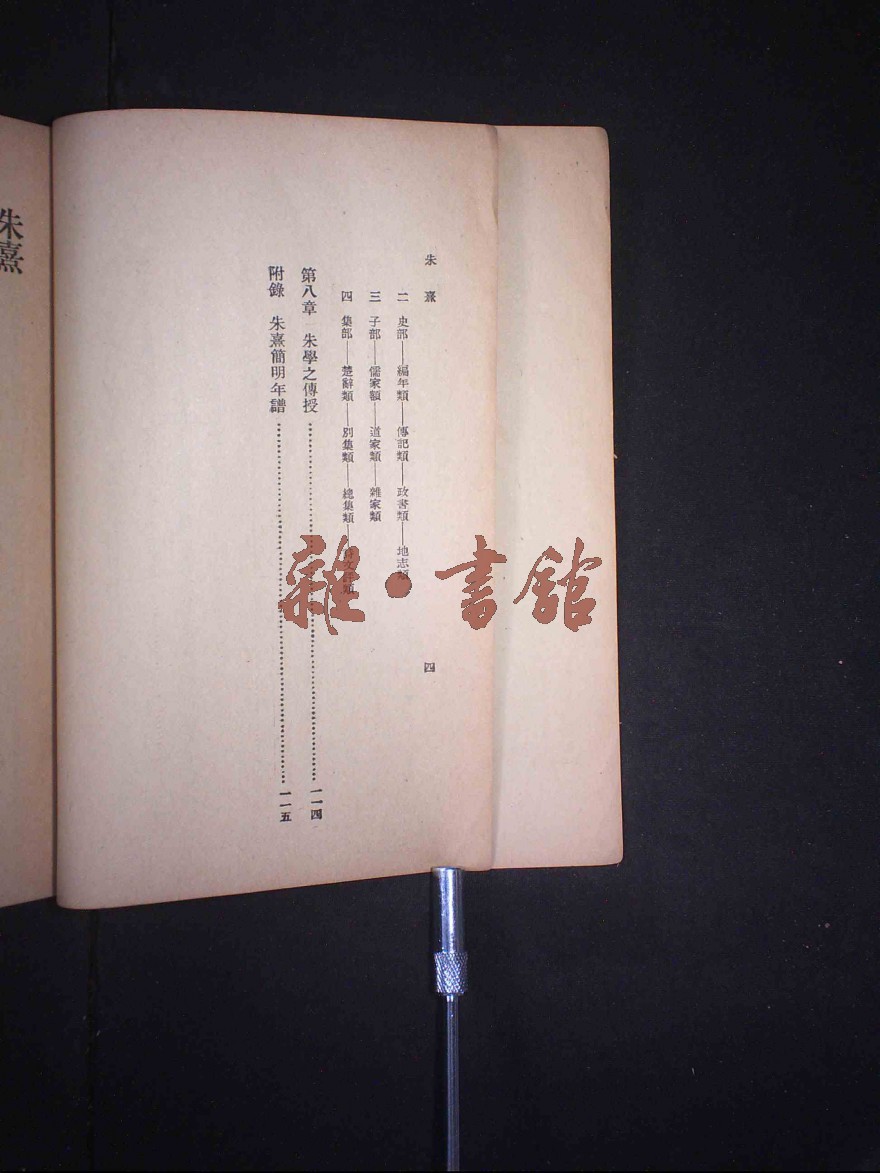 朱熹 四
二 史部——編年類——傳記類——政書類——地志類
三 子部——儒家額——道家類——雜家類
四 集部——楚辭類——別集類——總集類——詩文評類
第八章 朱學之傳授……一一四
附錄 朱熹簡明年譜……一一五
朱熹
雜·書館